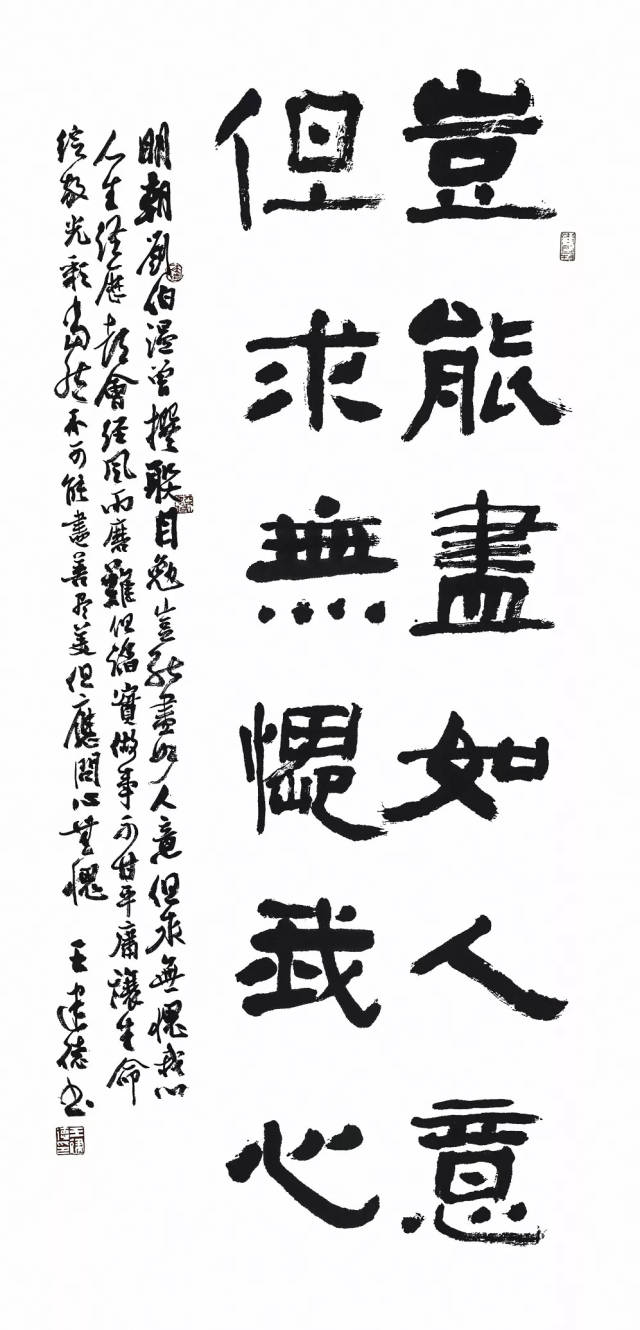 豈能盡如人意
但求無愧我心
明朝劉伯溫曾撰聯自勉豈能盡如人意但求無愧我心
人生經歷都會經風雨磨難但踏實做事不甘平庸讓生命
綻放光彩當然不可能盡善盡美但應問心無愧 王建德书